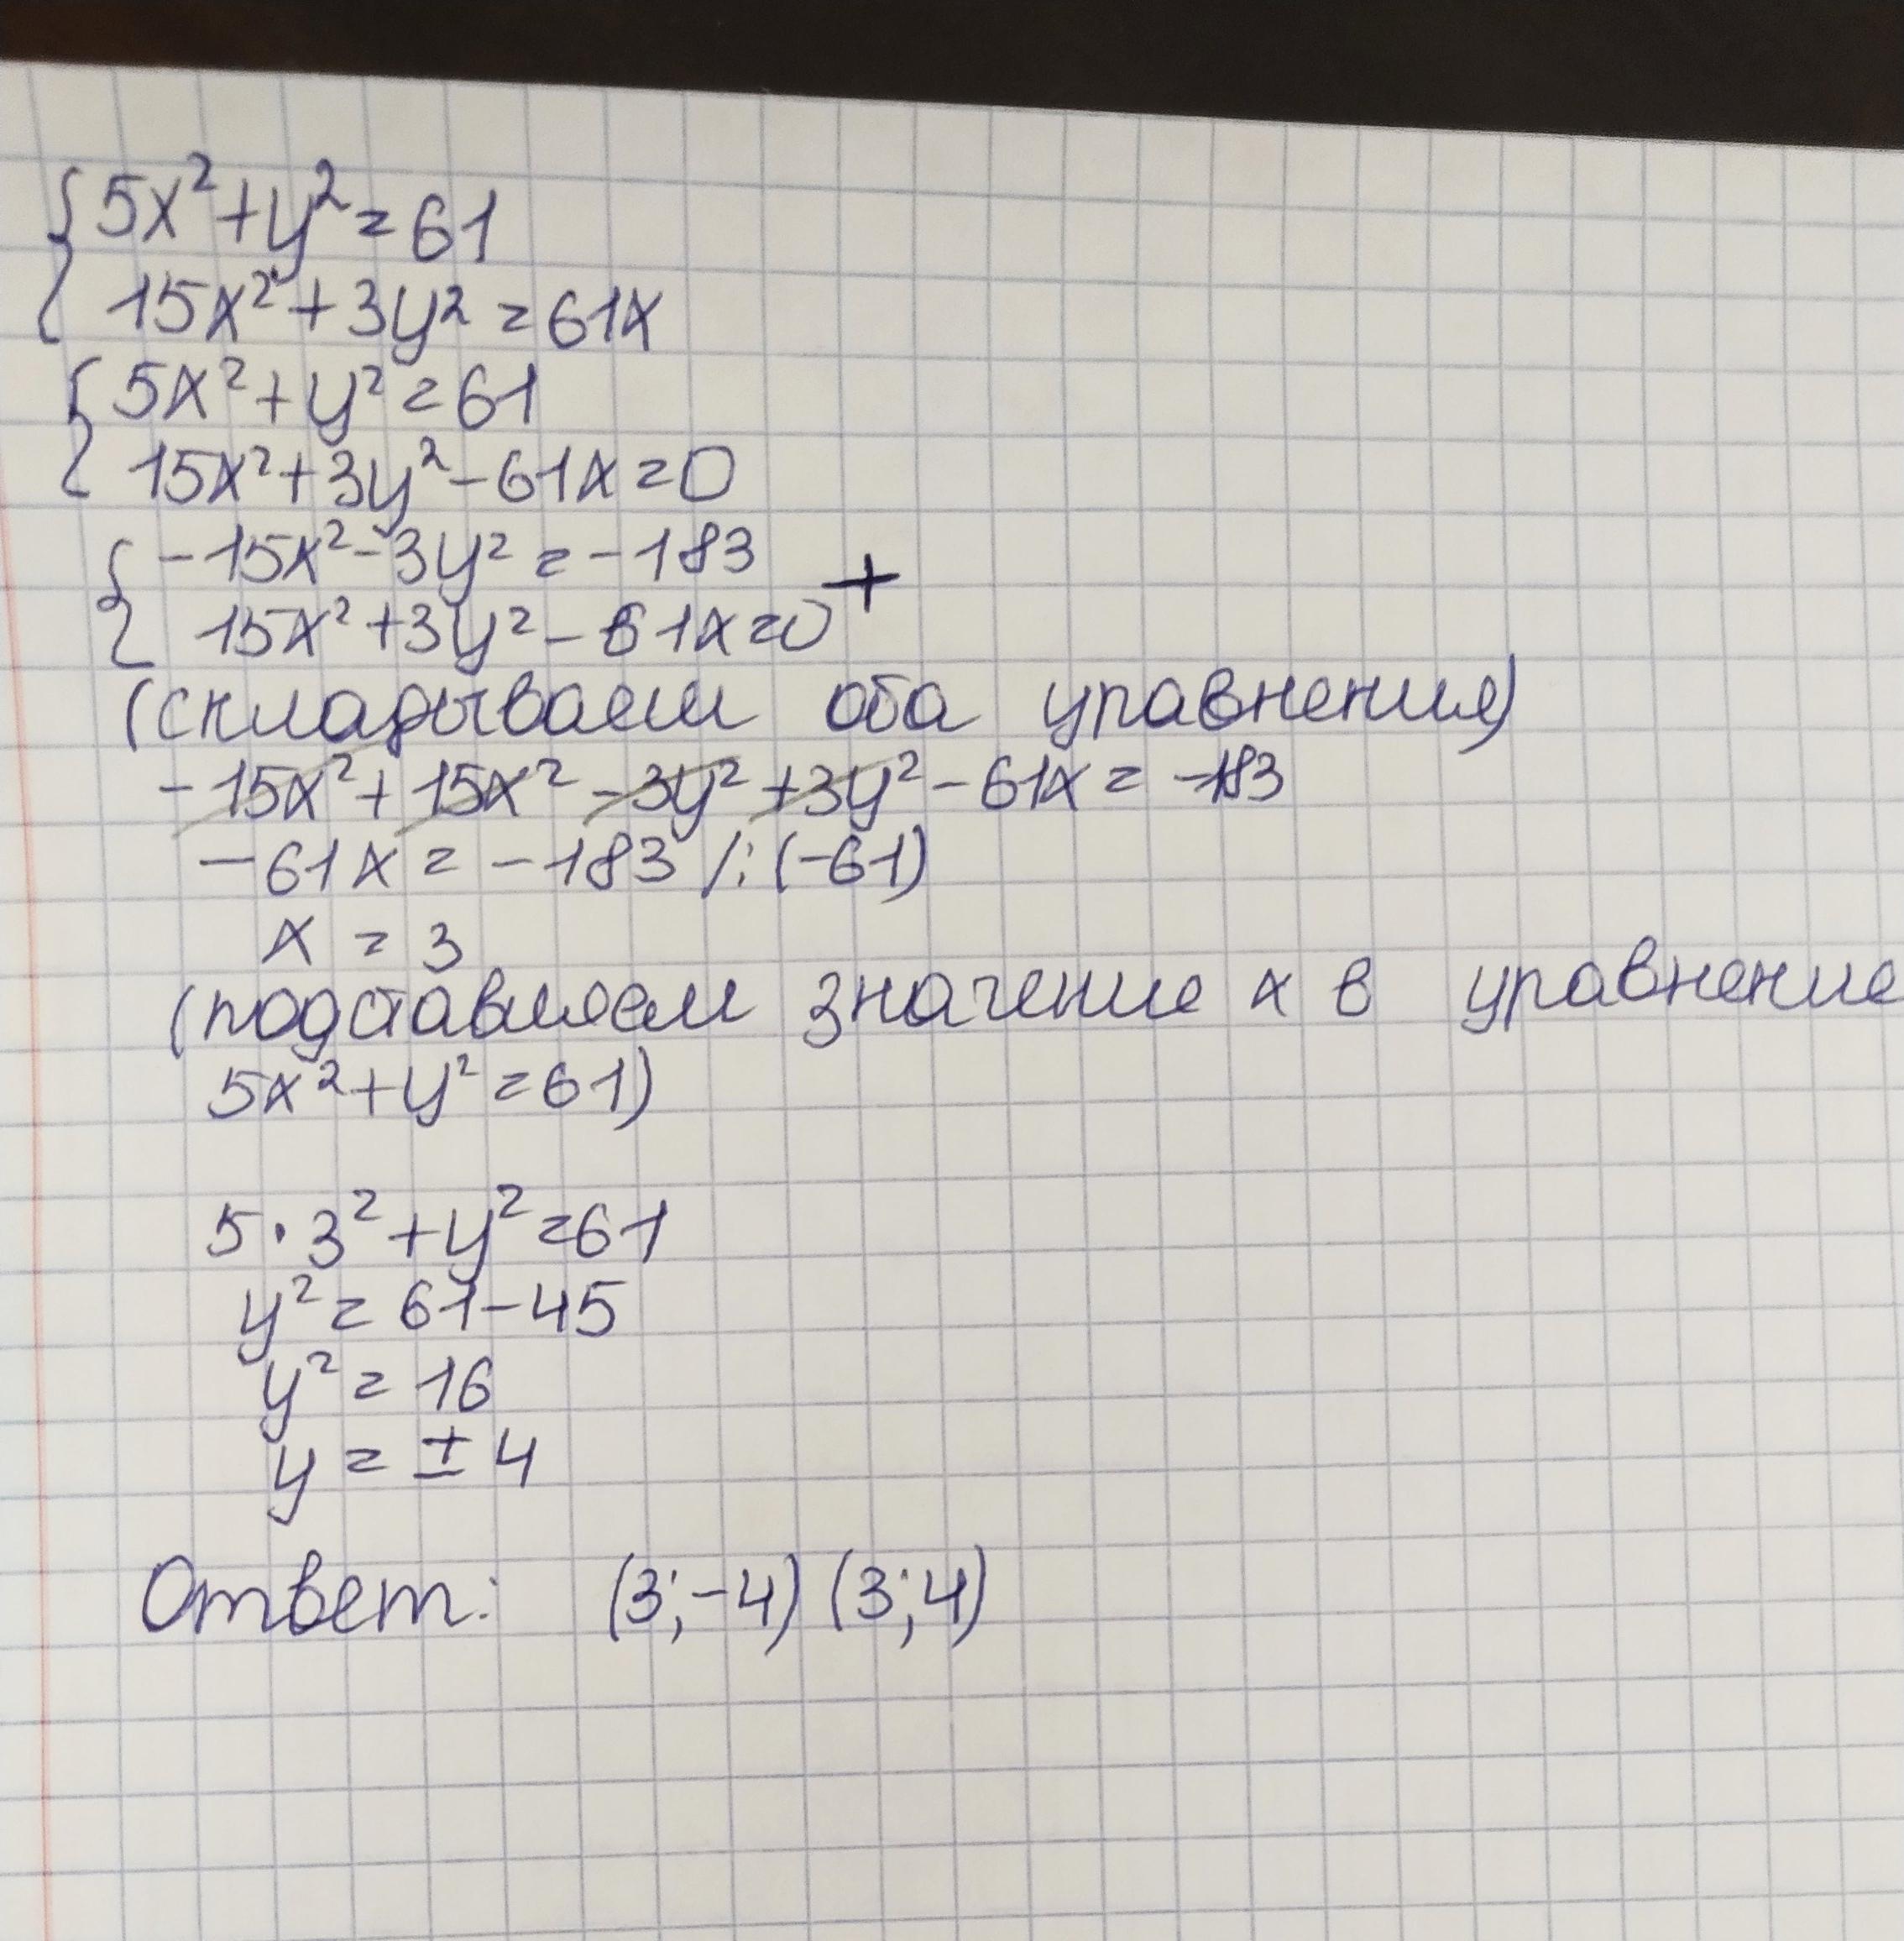 {5x²+y²=61
15x²+3y²=61x
{5x²+y²=61
15x²+3y²-61x=0
{-15x²-3y²=-183
15x²+3y²-61x=0 +
(складываем оба уравнения)
-15x²+15x²-3y²+3y²-61x=-183
-61x=-183 /:(-61)
x=3
(подставляем значение x в уравнение
5x²+y²=61)
5·3²+y²=61
y²=61-45
y²=16
y=±4
Ответ: (3;-4) (3;4)